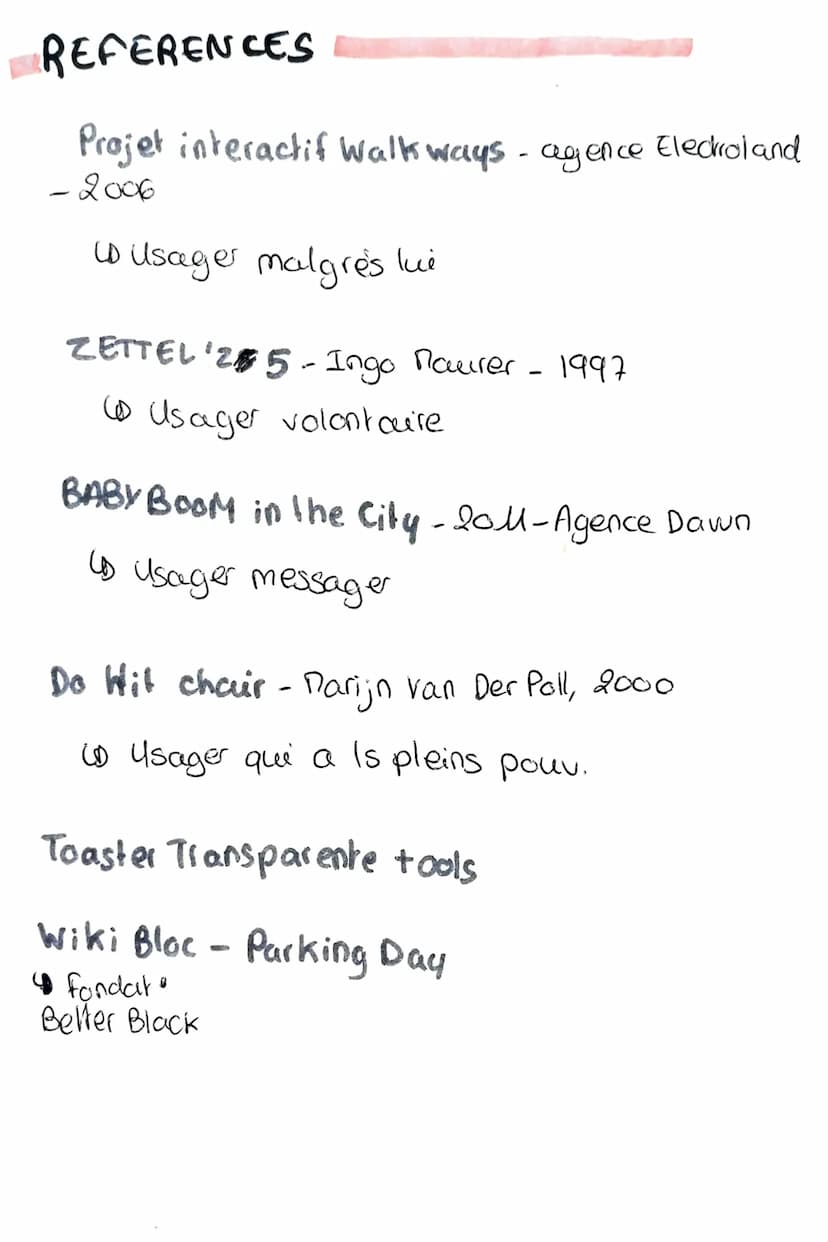 REFERENCES
Projet interactif Walkways - agence Electroland
- 2006
↳ Usager malgrès lui
ZETTEL'Z 5 - Ingo Maurer - 1997
↳ Usager volontaire
BABY BOOM in the City - 2011 - Agence Dawn
↳ Usager messager
Do Hit chair - Marijn van Der Poll, 2000
↳ Usager qui a ls pleins pouv.
Toaster Transparente tools
Wiki Bloc - Parking Day
↳ fondat°
Better Black